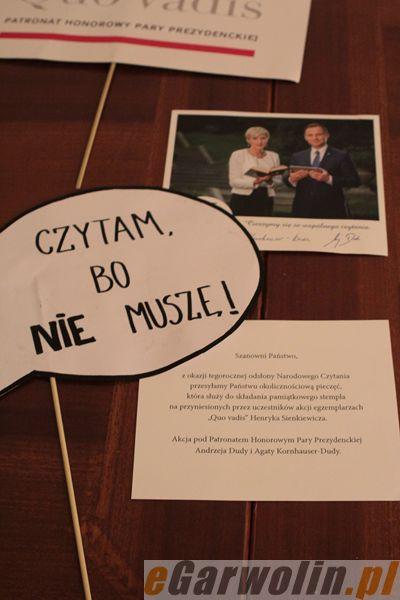 Quo vadis
PATRONAT HONOROWY PARY PREZYDENCKIEJ
"Cieszymy się ze wspólnego czytania.
CZYTAM,
BO
NIE MUSZĘ!
Szanowni Państwo,
z okazji tegorocznej odsłony Narodowego Czytania
przesyłamy Państwu okolicznościową pieczęć,
która służy do składania pamiątkowego stempla
na przyniesionych przez uczestników akcji egzemplarzach
„Quo vadis” Henryka Sienkiewicza.
Akcja pod Patronatem Honorowym Pary Prezydenckiej
Andrzeja Dudy i Agaty Kornhauser-Dudy.
eGarwolin.pl